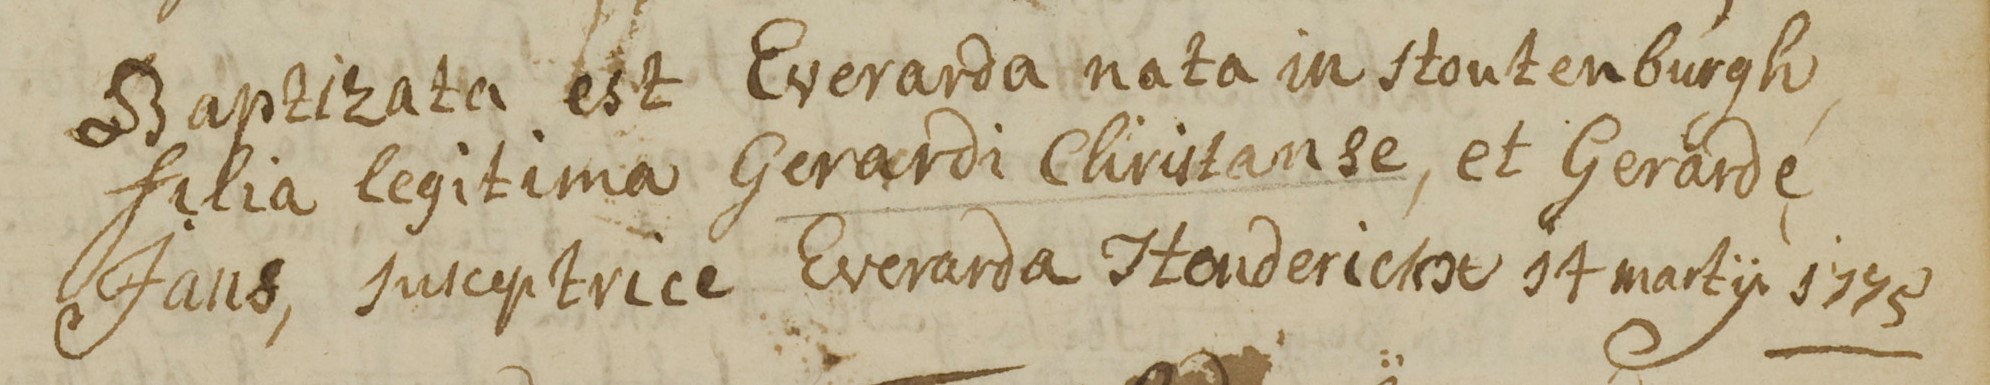 Baptizata est Everarda nata in stoutenburgh,
filia legitima Gerardi Christanse, et Gerardę
Jans, susceptrice Everarda Henderickx 14 martij 1775